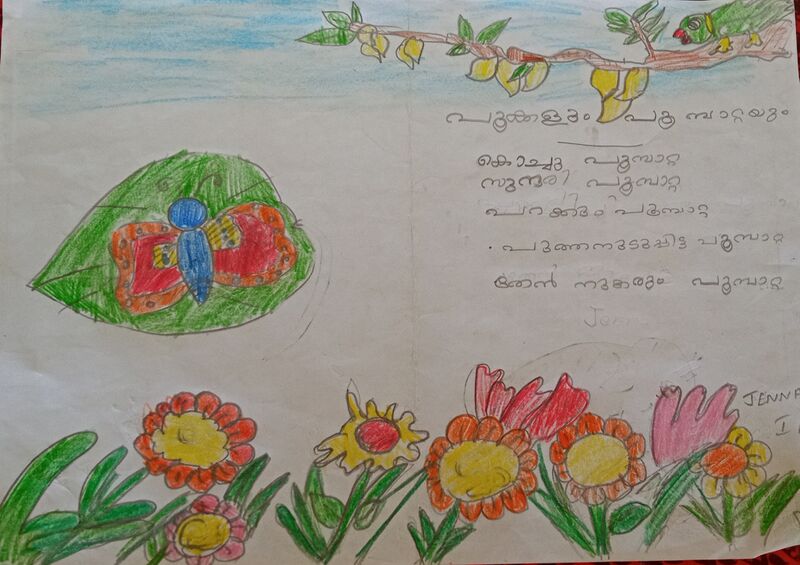 പൂക്കളും പൂമ്പാറ്റയും
കൊച്ചു പൂമ്പാറ്റ
സുന്ദരി പൂമ്പാറ്റ
പറക്കും പൂമ്പാറ്റ
പുത്തനുടുപ്പിട്ട പൂമ്പാറ്റ
തേൻ നുകരും പൂമ്പാറ്റ
JENNA
I